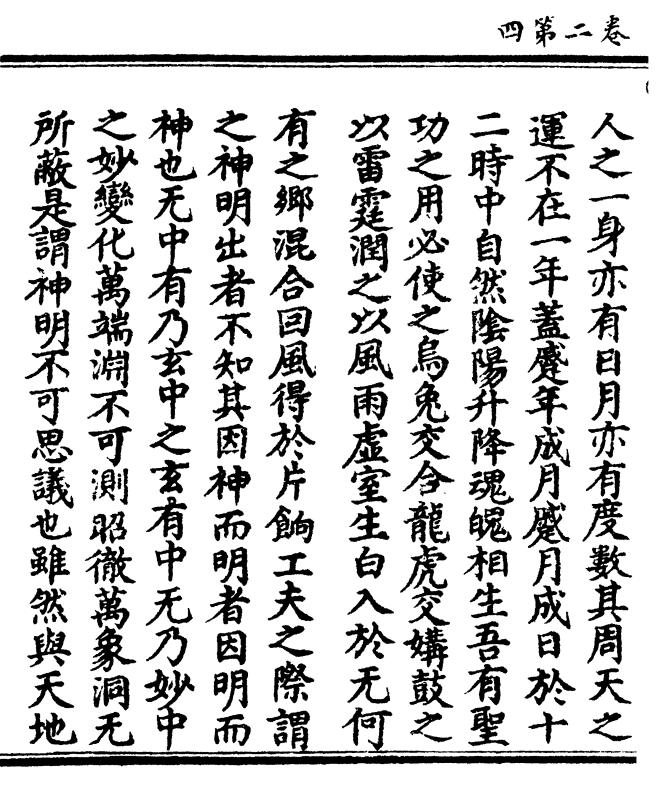 卷二第四
人之一身亦有日月亦有度數其周天之
運不在一年蓋蹙年成月蹙月成日於十
二時中自然陰陽升降魂魄相生吾有聖
功之用必使之烏兔交合龍虎交媾鼓之
以雷霆潤之以風雨虛室生白入於无何
有之鄉混合回風得於片餉工夫之際謂
之神明出者不知其因神而明者因明而
神也无中有乃玄中之玄有中无乃妙中
之妙變化萬端淵不可測昭徹萬象洞无
所蔽是謂神明不可思議也雖然與天地